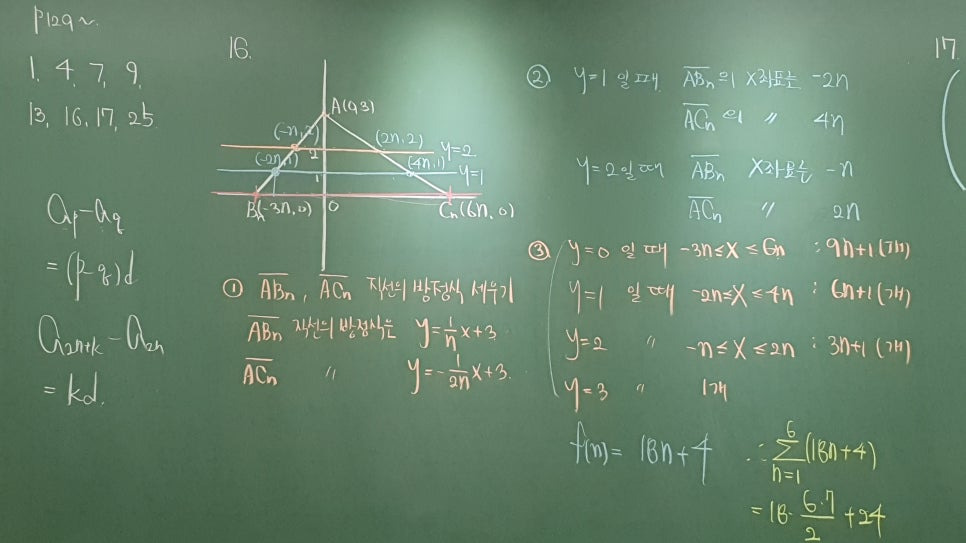 P129~
1. 4. 7. 9.
13. 16. 17. 25.
a_p-a_q
=(p-q)d
a_{2n+k}-a_{2n}
=kd.
16.
A(0,3)
(-n,2)
(2n,2)
y=2
2
(-2n,1)
(4n,1)
y=1
1
B_n(-3n,0)
0
C_n(6n,0)
① \overline{AB_n}, \overline{AC_n} 직선의 방정식 세우기
\overline{AB_n} 직선의 방정식은 y=\frac{1}{n}x+3
\overline{AC_n} 〃 y=-\frac{1}{2n}x+3.
② y=1일 때 \overline{AB_n}의 x좌표는 -2n
\overline{AC_n}의 〃 4n
y=2일 때 \overline{AB_n} x좌표는 -n
\overline{AC_n} 〃 2n
③ y=0 일 때 -3n≤x≤6n : 9n+1(개)
y=1 일 때 -2n≤x≤4n : 6n+1(개)
y=2 〃 -n≤x≤2n : 3n+1(개)
y=3 〃 1개
f(n)=18n+4
∴ \sum_{n=1}^{6}(18n+4)
=18·\frac{6·7}{2}+24
17.